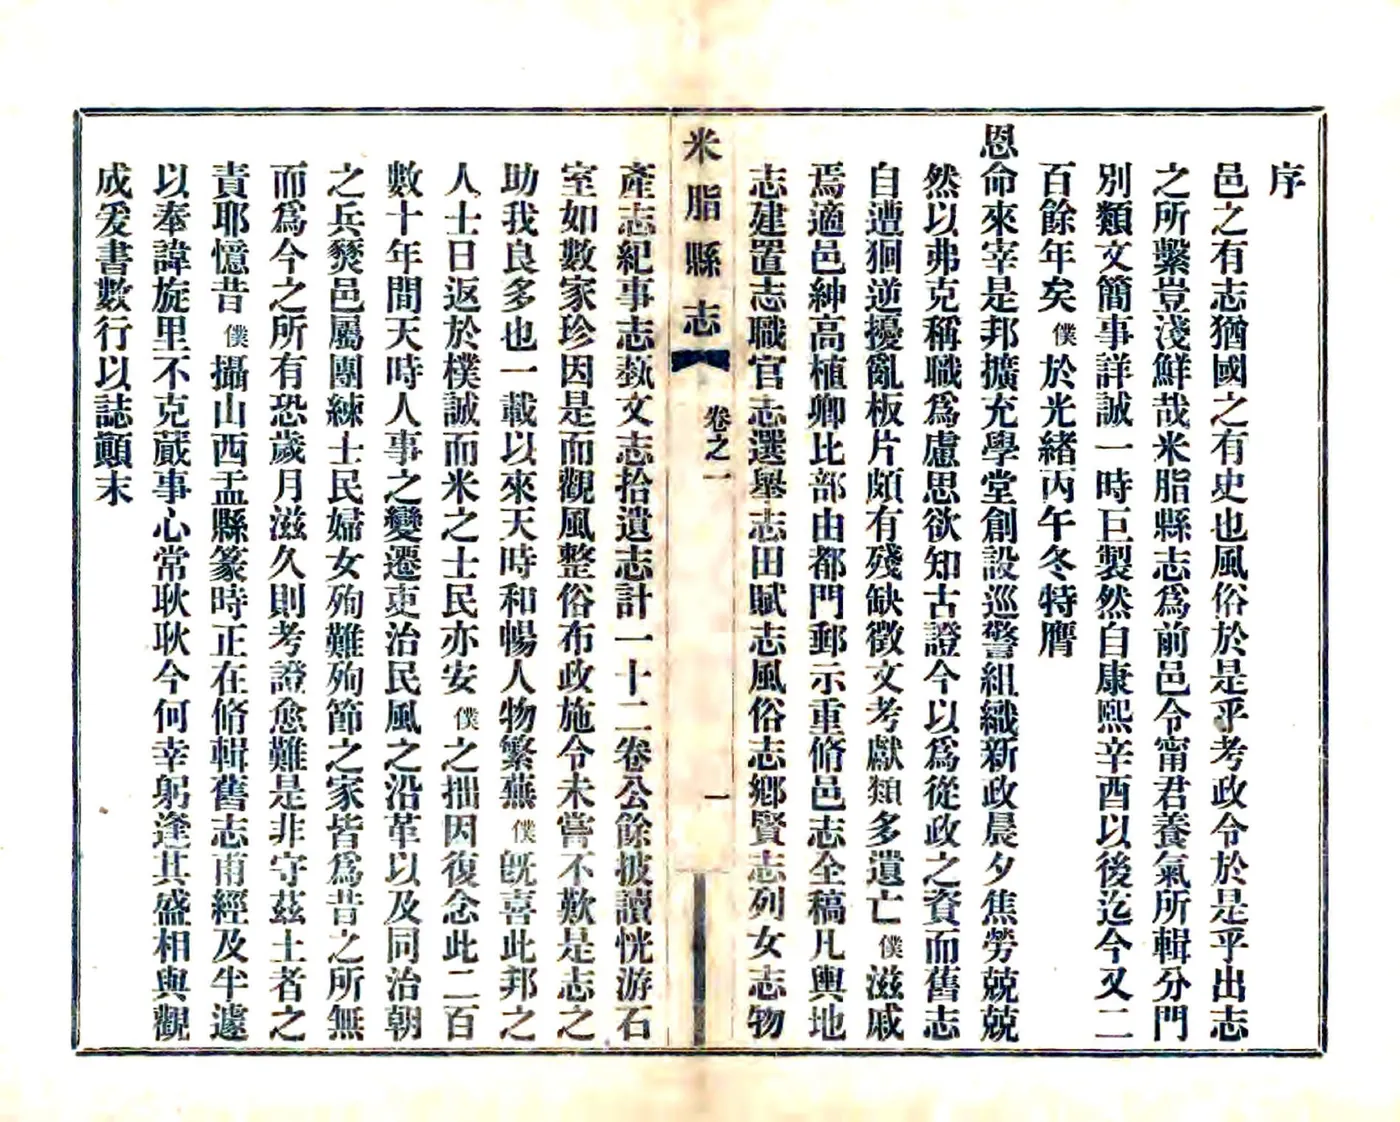 序
邑之有志猶國之有史也風俗於是乎考政令於是乎出志
之所繫豈淺鮮哉米脂縣志爲前邑令甯君養氣所輯分門
別類文簡事詳誠一時巨製然自康熙辛酉以後迄今又二
百餘年矣僕於光緒丙午冬特膺
恩命來宰是邦擴充學堂創設巡警組織新政晨夕焦勞兢兢
然以弗克稱職爲慮思欲知古證今以爲從政之資而舊志
自遭狪逆擾亂板片頗有殘缺徵文考獻類多遺亡僕滋戚
焉適邑紳高植卿比部由都門郵示重脩邑志全稿凡輿地
志建置志職官志選舉志田賦志風俗志鄉賢志列女志物
米脂縣志
卷之一
一
產志紀事志藝文志拾遺志計一十二卷公餘披讀恍游石
室如數家珍因是而觀風整俗布政施令未嘗不歎是志之
助我良多也一載以來天時和暢人物繁蕪僕旣喜此邦之
人士日返於樸誠而米之士民亦安僕之拙因復念此二百
數十年間天時人事之變遷吏治民風之沿革以及同治朝
之兵燹邑屬團練士民婦女殉難殉節之家皆爲昔之所無
而爲今之所有恐歲月滋久則考證愈難是非守茲土者之
責耶憶昔僕攝山西盂縣篆時正在脩輯舊志甫經及半遽
以奉諱旋里不克蕆事心常耿耿今何幸躬逢其盛相與觀
成爰書數行以誌顚末